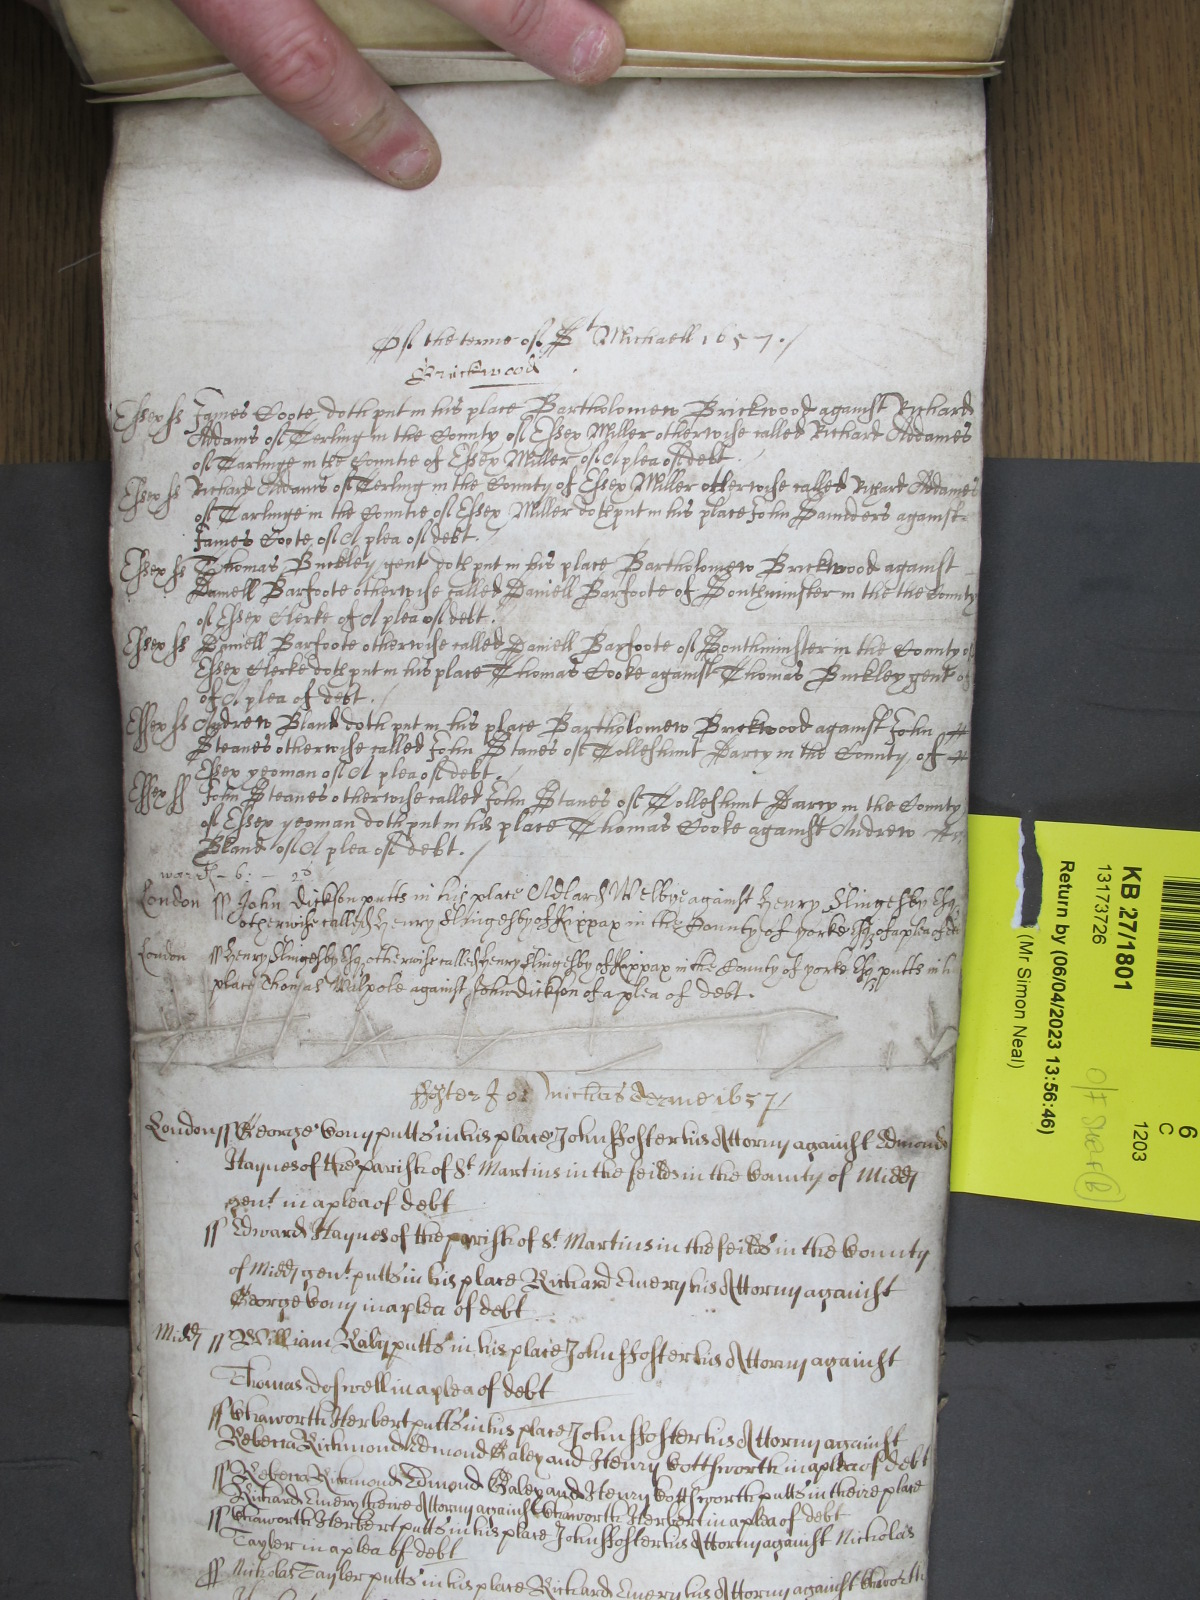 Of the terme of St Michaell 1657./
Brickwood
Essex ss James Coote doth put in his place Bartholomew Brickwood against Richard
Addams of Terling in the County of Essex Miller otherwise called Richard Addames
of Tarlinge in the Countie of Essex Miller of A plea of debt. /
Essex ss Richard Addams of Terling in the County of Essex Miller otherwise called Richard Addames
of Tarlinge in the Countie of Essex Miller doth put in his place John Saunders against
James Coote of A plea of debt. /
Essex ss Thomas Buckley gent doth put in his place Bartholomew Brickwood against
Daniell Barfoote otherwise called Daniell Barfoote of Southminster in the the County
of Essex Clerke of A plea of debt. /
Essex ss Daniell Barfoote otherwise called Daniell Barfoote of Southminster in the County of
Essex Clerke doth put in his place Thomas Cooke against Thomas Buckley gent of
of A plea of debt. /
Essex ss Andrew Bland doth put in his place Bartholomew Brickwood against John
Steanes otherwise called John Stanes of Tolleshunt Darcy in the County of
Essex yeoman of A plea of debt. /
Essex ss John Steanes otherwise called John Stanes of Tolleshunt Darcy in the County
of Essex yeoman doth put in his place Thomas Cooke against Andrew
Bland of A plea of debt. /
London ss John Dickson putts in his place Adlard Welbye against Henry Slingesby Esq
otherwise called Henry Slingesby of Kippax in the County of yorke Esq of a plea of de
London ss Henry Slingesby Esq otherwise called Henry Slingesby of Kippax in the County of yorke Esq putts in his
place Thomas Walpole against John Dickson of a plea of debt.
ffoster Jo: Michas Terme 1657/
London ss George Cony putts in his place John ffoster his Attorny against Edmond
Haynes of the parish of St Martins in the feilds in the County of Midd
gent in a plea of debt
ss Edward Haynes of the parish of St Martins in the feilds in the County
of Midd gent putts in his place Richard Emery his Attorny against
George Cony in a plea of debt
Midd ss William Raby putts in his place John ffoster his Attorny against
Thomas doswell in a plea of debt
ss Chaworth Herbert putts in his place John ffoster his Attorny against
Rebecca Richmond Edmond Galey and Henry Cottsworth in a plea of debt
ss Rebecca Richmond Edmond Galey and Henry Cottsworth putts in theire place
Richard Emery theire Attorny against Chaworth Herbert in a plea of debt
ss Chaworth Herbert putts in his place John ffoster his Attorny against Nicholas
Tayler in a plea of debt
ss Nicholas Tayler putts in his place Richard Emery his Attorny against Chaworth
KB 27/1801
13173726
Return by (06/04/2023 13:56:46)
(Mr Simon Neal)
6
C
1203